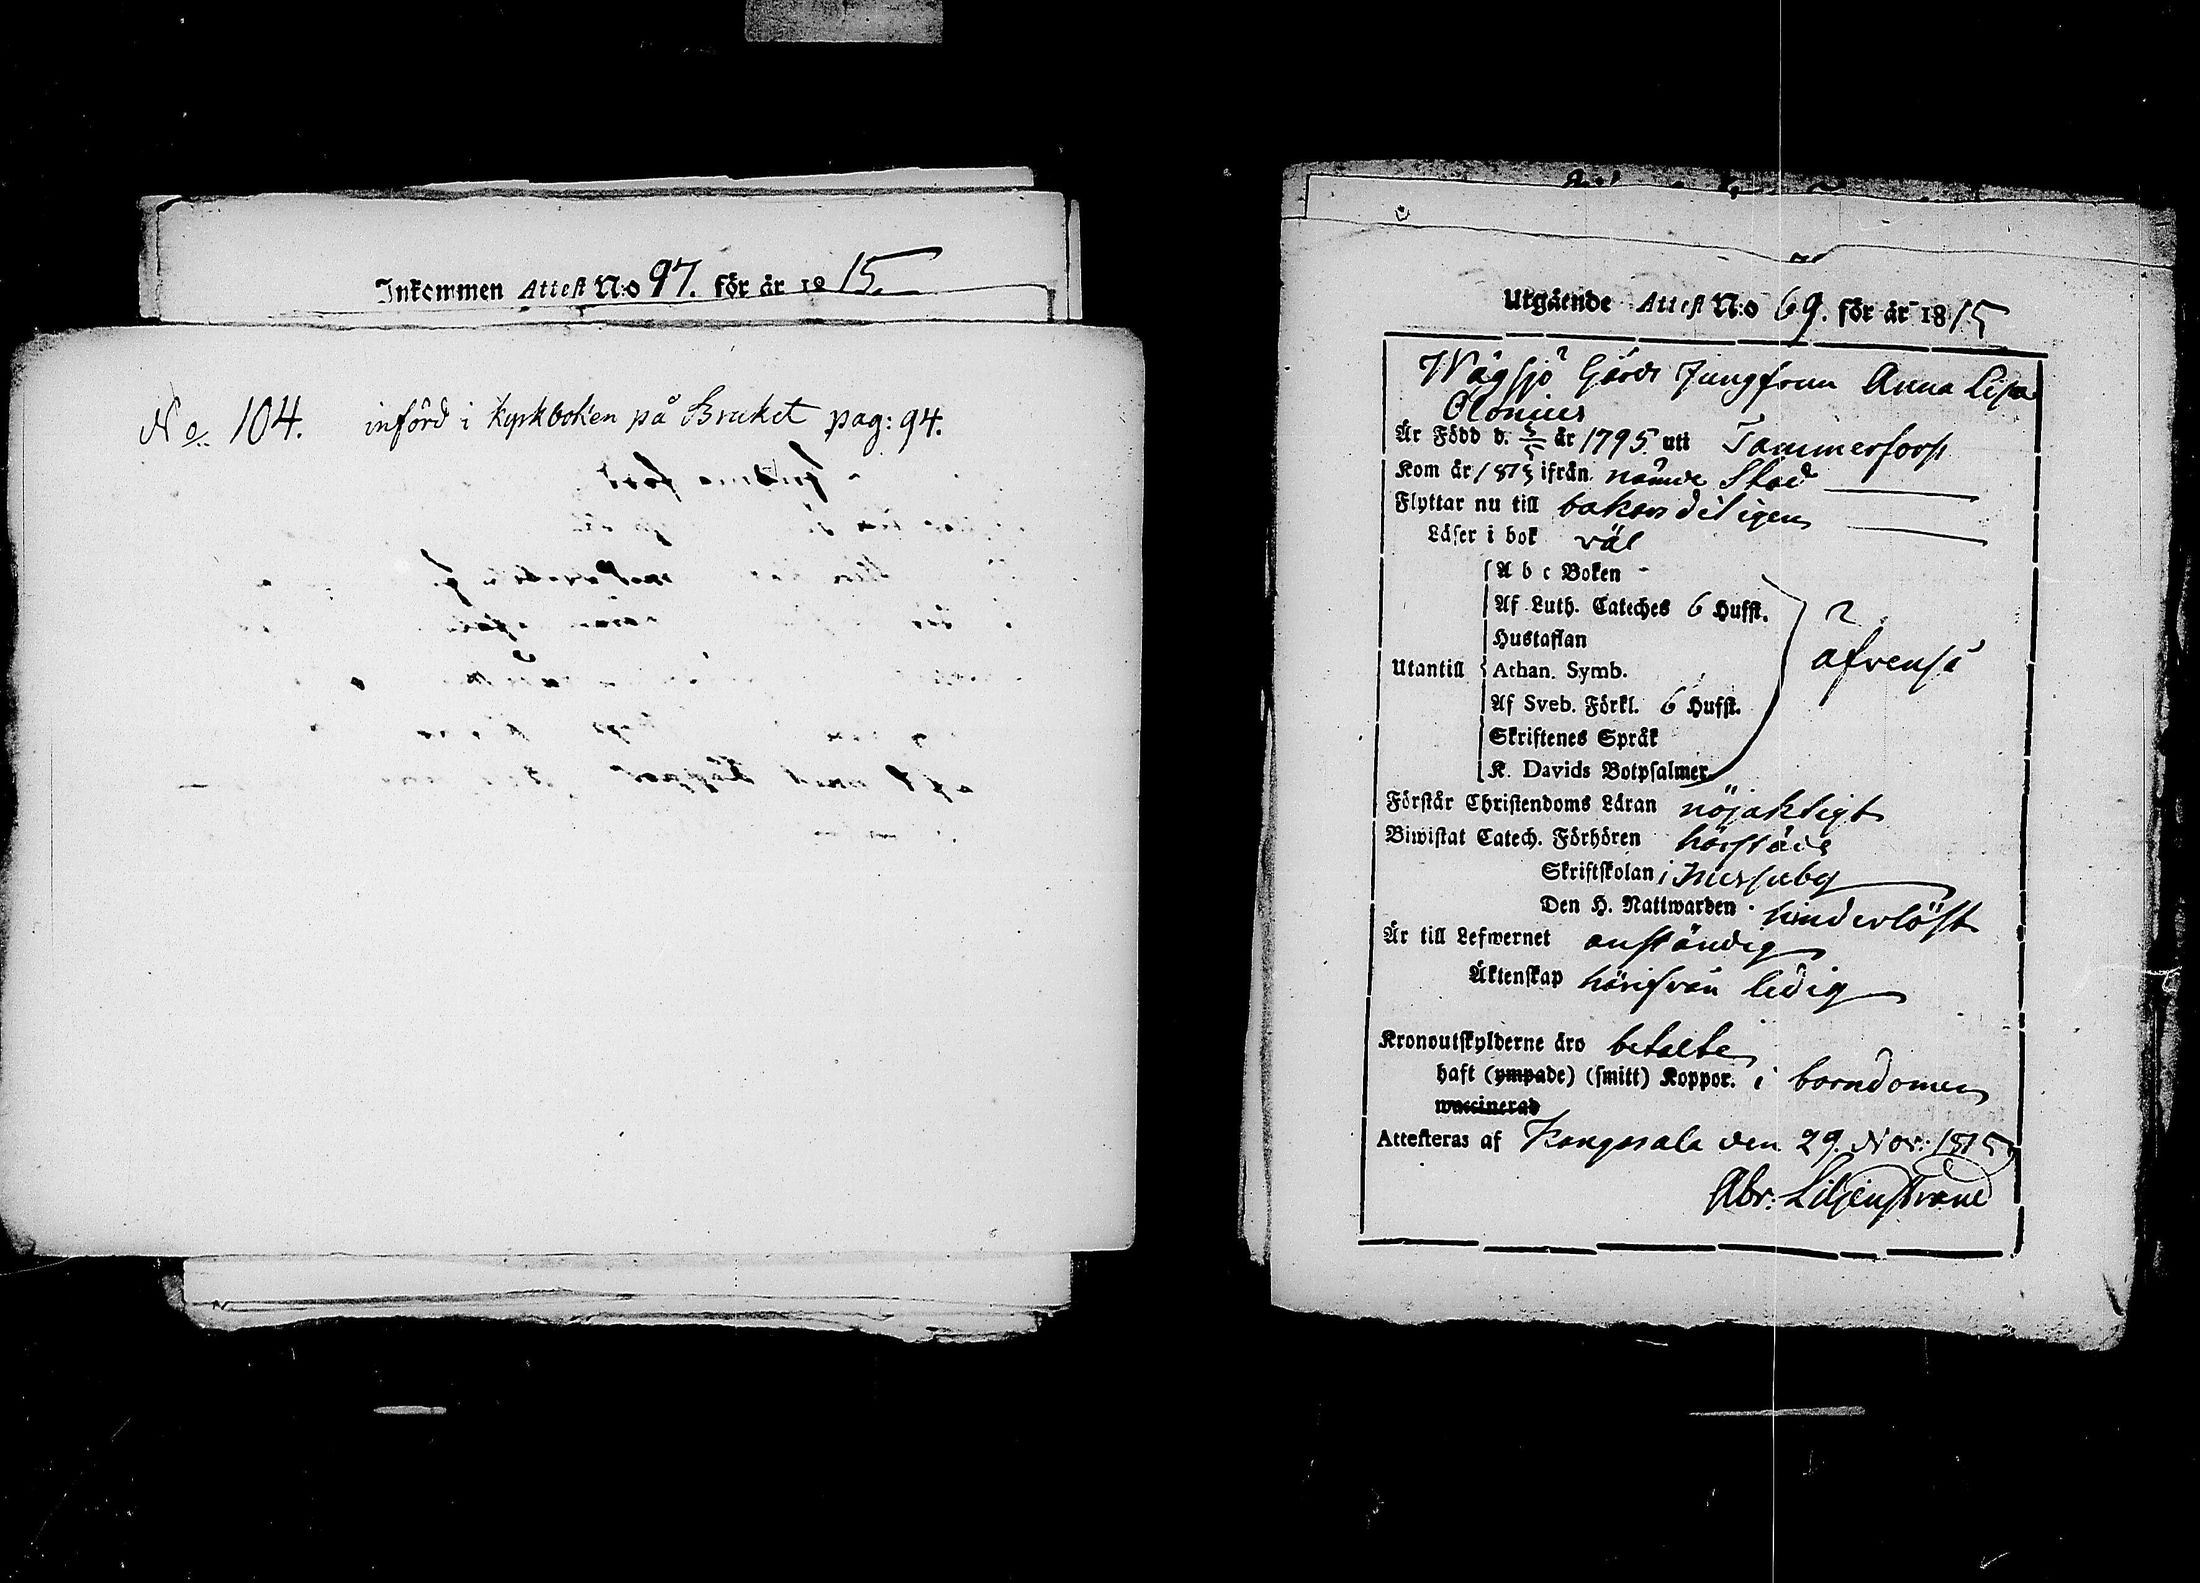 Inkommen Attest N:o 97. för år 1815.
No. 104. införd i Kyrkboken på Bruket pag: 94.
Utgående Attest N:o 69. för år 1815
Wägsjö Gårds Jungfrun Anna Lisa
Clonius
År Född d. 5/5 år 1795. uti Tammerfors
Kom år 1815 ifrån nämde Stad
Flyttar nu till
Läser i bok väl
Utantill
A b c Boken
Af Luth. Cateches 6 Hufst.
Hustaflan
Athan. Symb.
Af Sveb. Förkl. 6 Hufst.
Skriftenes Språk
K. Davids Botpsalmer
äfvenså
Förstår Christendoms Läran nöjaktigt
Biwistat Catech. Förhören härstäds
Skriftskolan i Messuby
Den H. Nattwarden hinderlöst
Är till Lefwernet anständig
Äktenskap härifrån ledig
Kronoutskylderne äro betalte
haft (ympade) (smitt) Koppor. i barndomen
waccinerad
Attesteras af Kangasala den 29. Nov. 1815.
Abr. Liljenstrand